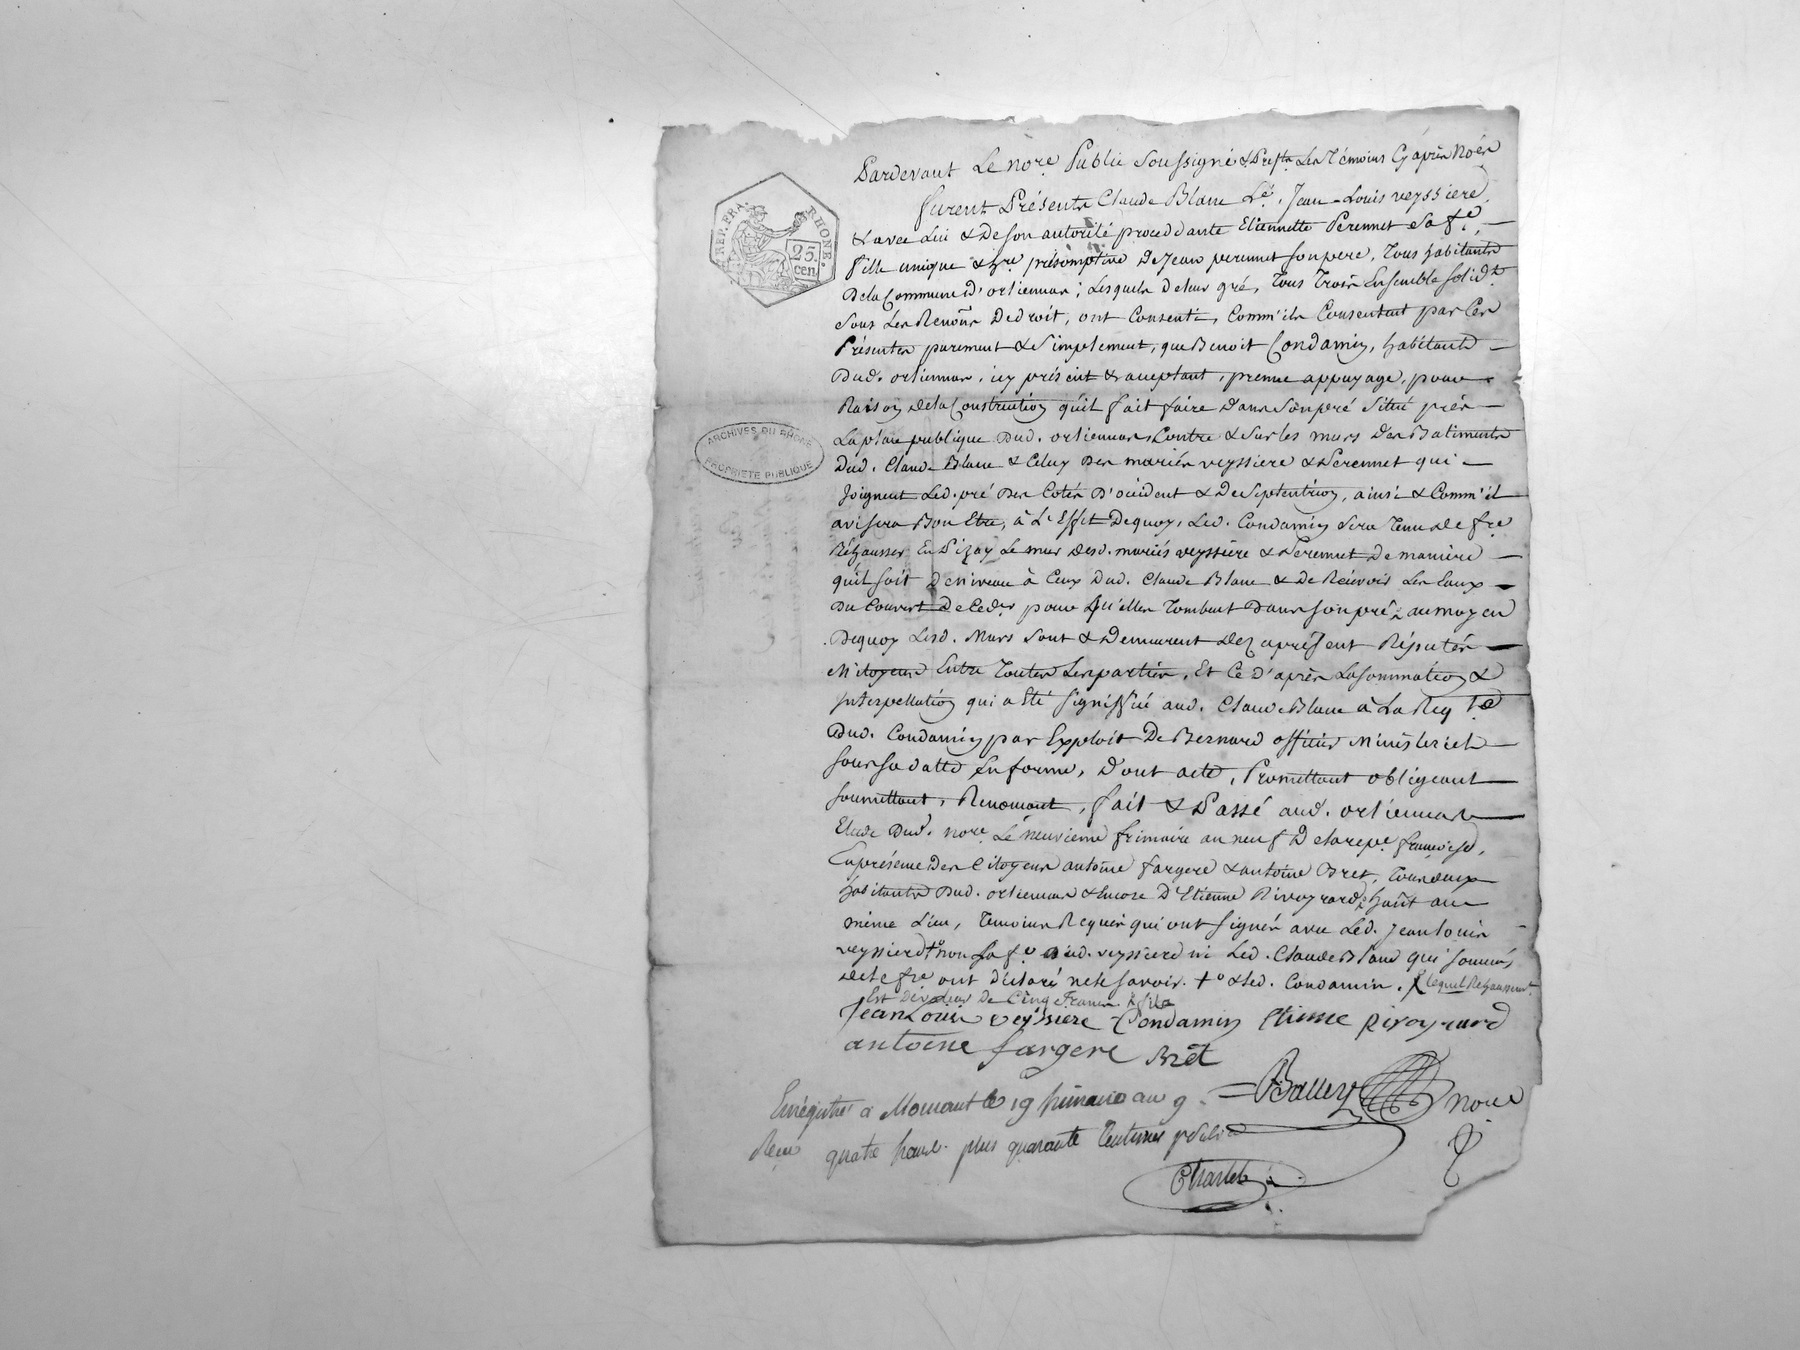 Pardevant Le no.re Public Soussigné & Prést.s Les Témoins Cy après Nōés
furent Présents Claude Blanc L.é, Jean-Louis veyssiere,
& avec Lui & De son autorité procedante Etiennette Perennet Sa f.e,
fille unique & h.re présomptive De Jean perennet son pere, Tous habitants
De la Commune D'orliennas ; Lesquels De leur gré, Tous Trois Ensemble solid.t
Sous Les Renōns De droit, ont Consenti, Comm'ils Consentent par Ces
Présentes purement & Simplement, que Benoit Condamin, habitant
Dud. orliennas, icy présent & acceptant, prenne appuyage, pour
Raison de la Construction qu'il fait faire Dans Son pré Situé près
La place publique Dud. orliennas, Contre & Sur les murs Des Batiments
Dud. Claude Blanc & Celuy Des mariés veyssiere & Perennet qui
Joignent Led. pré Des Cotés D'occident & De Septentrion, ainsi & Comm'il
avisera Bon Etre, à L'Effet De quoy, Led. Condamin Sera Tenu de f.re
Réhausser En Pizay Le mur desd. mariés veyssiere & Perennet De maniere
qu'il soit De niveau à Ceux Dud. Claude Blanc & De Recevoir Les Eaux
Du Couvert De Ced.er pour qu'elles Tombent Dans son pré, au moyen
De quoy Lesd. Murs Sont & Demeurent dez aprésent Réputés
Mitoyens Entre Toutes Les parties, Et Ce D'après La sommation &
Interpellation qui a Eté signiffié aud. Claude Blanc à La Req.te
Dud. Condamin par Exploit De Bernard officier Ministeriel
sous sa datte En forme, Dont acte, Promettant obligeant
soumettant, Renonçant, fait & Passé aud. orliennas
Etude Dud. no.re Le neuvieme frimaire an neuf De la rep.e françoise,
En présence Des Citoyens antoine fargere & antoine Bret, Tous deux
habitants Dud. orliennas & Encore D'Etienne Rivoyrard, hāut au
même Lieu, Témoins Requis qui ont signés avec Led. Jean Louis
veyssiere +° non sa f.e aud. veyssiere ni Led. Claude Blanc qui sommés
de le f.re ont déclaré ne le savoir. +° & Led. Condamin. Lequel Rehaussem.t
Est De valeur De Cinq francs
Jean Louis veyssiere Condamin Etienne Rivoyrard
antoine fargere Bret
Enrégistré à Mornant le 19 frimaire an 9. Balley no.re
Reçu quatre francs plus quarante Centimes p Subv.on
Charlet
REP. FRA. RHONE.
25. cen.
ARCHIVES DU RHONE
PROPRIETE PUBLIQUE